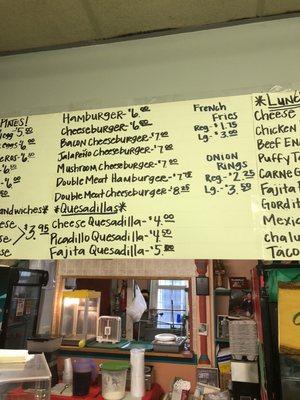 Hamburger- $6.00
Cheeseburger- $6.50
Bacon Cheeseburger- $7.00
Jalapeño Cheeseburger- $7.00
Mushroom Cheeseburger- $7.00
Double Meat Hamburger- $7.75
Double Meat Cheeseburger- $8.25
*Quesadillas*
Cheese Quesadilla- $4.00
Picadillo Quesadilla- $4.50
Fajita Quesadilla- $5.00
> $3.95
French
Fries
Reg- $1.75
Lg- $3.00
Onion
Rings
Reg- $2.25
Lg- $3.50
Cheese
Chicken
Beef En
Puffy T
Carne G
Fajita
Gordit
Mexic
Chalu
Taco